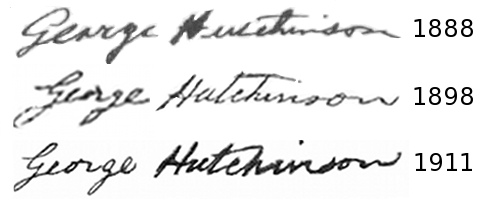 George Hutchinson 1888
George Hutchinson 1898
George Hutchinson 1911